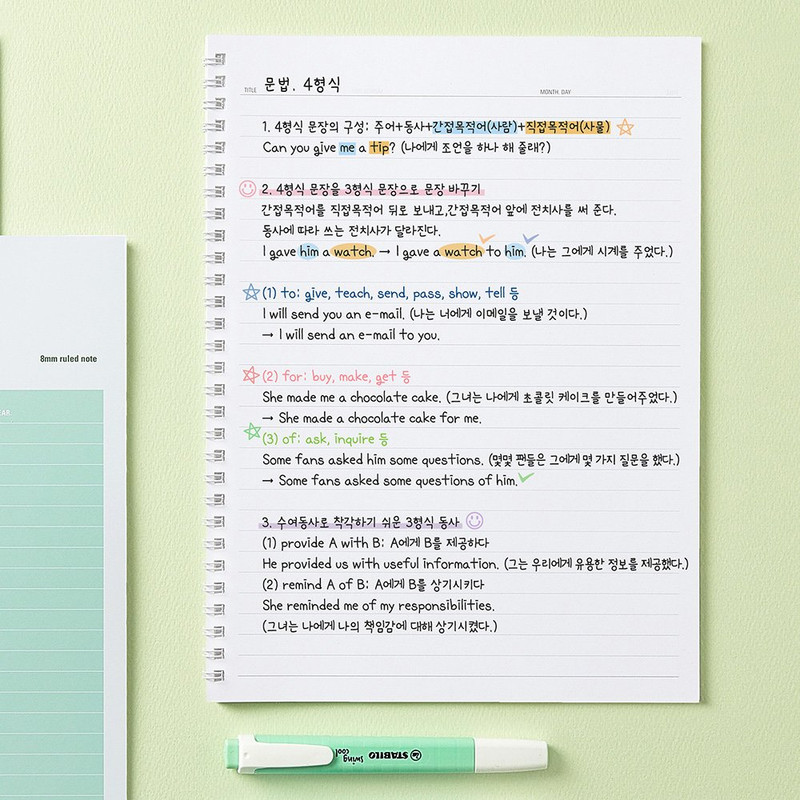 TITLE 문법. 4형식 MONTH. DAY
1. 4형식 문장의 구성: 주어+동사+간접목적어(사람)+직접목적어(사물)
Can you give me a tip? (나에게 조언을 하나 해 줄래?)
2. 4형식 문장을 3형식 문장으로 문장 바꾸기
간접목적어를 직접목적어 뒤로 보내고,간접목적어 앞에 전치사를 써 준다.
동사에 따라 쓰는 전치사가 달라진다.
I gave him a watch. → I gave a watch to him. (나는 그에게 시계를 주었다.)
(1) to: give, teach, send, pass, show, tell 등
I will send you an e-mail. (나는 너에게 이메일을 보낼 것이다.)
→ I will send an e-mail to you.
(2) for: buy, make, get 등
She made me a chocolate cake. (그녀는 나에게 초콜릿 케이크를 만들어주었다.)
→ She made a chocolate cake for me.
(3) of: ask, inquire 등
Some fans asked him some questions. (몇몇 팬들은 그에게 몇 가지 질문을 했다.)
→ Some fans asked some questions of him.
3. 수여동사로 착각하기 쉬운 3형식 동사
(1) provide A with B: A에게 B를 제공하다
He provided us with useful information. (그는 우리에게 유용한 정보를 제공했다.)
(2) remind A of B: A에게 B를 상기시키다
She reminded me of my responsibilities.
(그녀는 나에게 나의 책임감에 대해 상기시켰다.)
8mm ruled note
EAR
STABILO
swing
cool